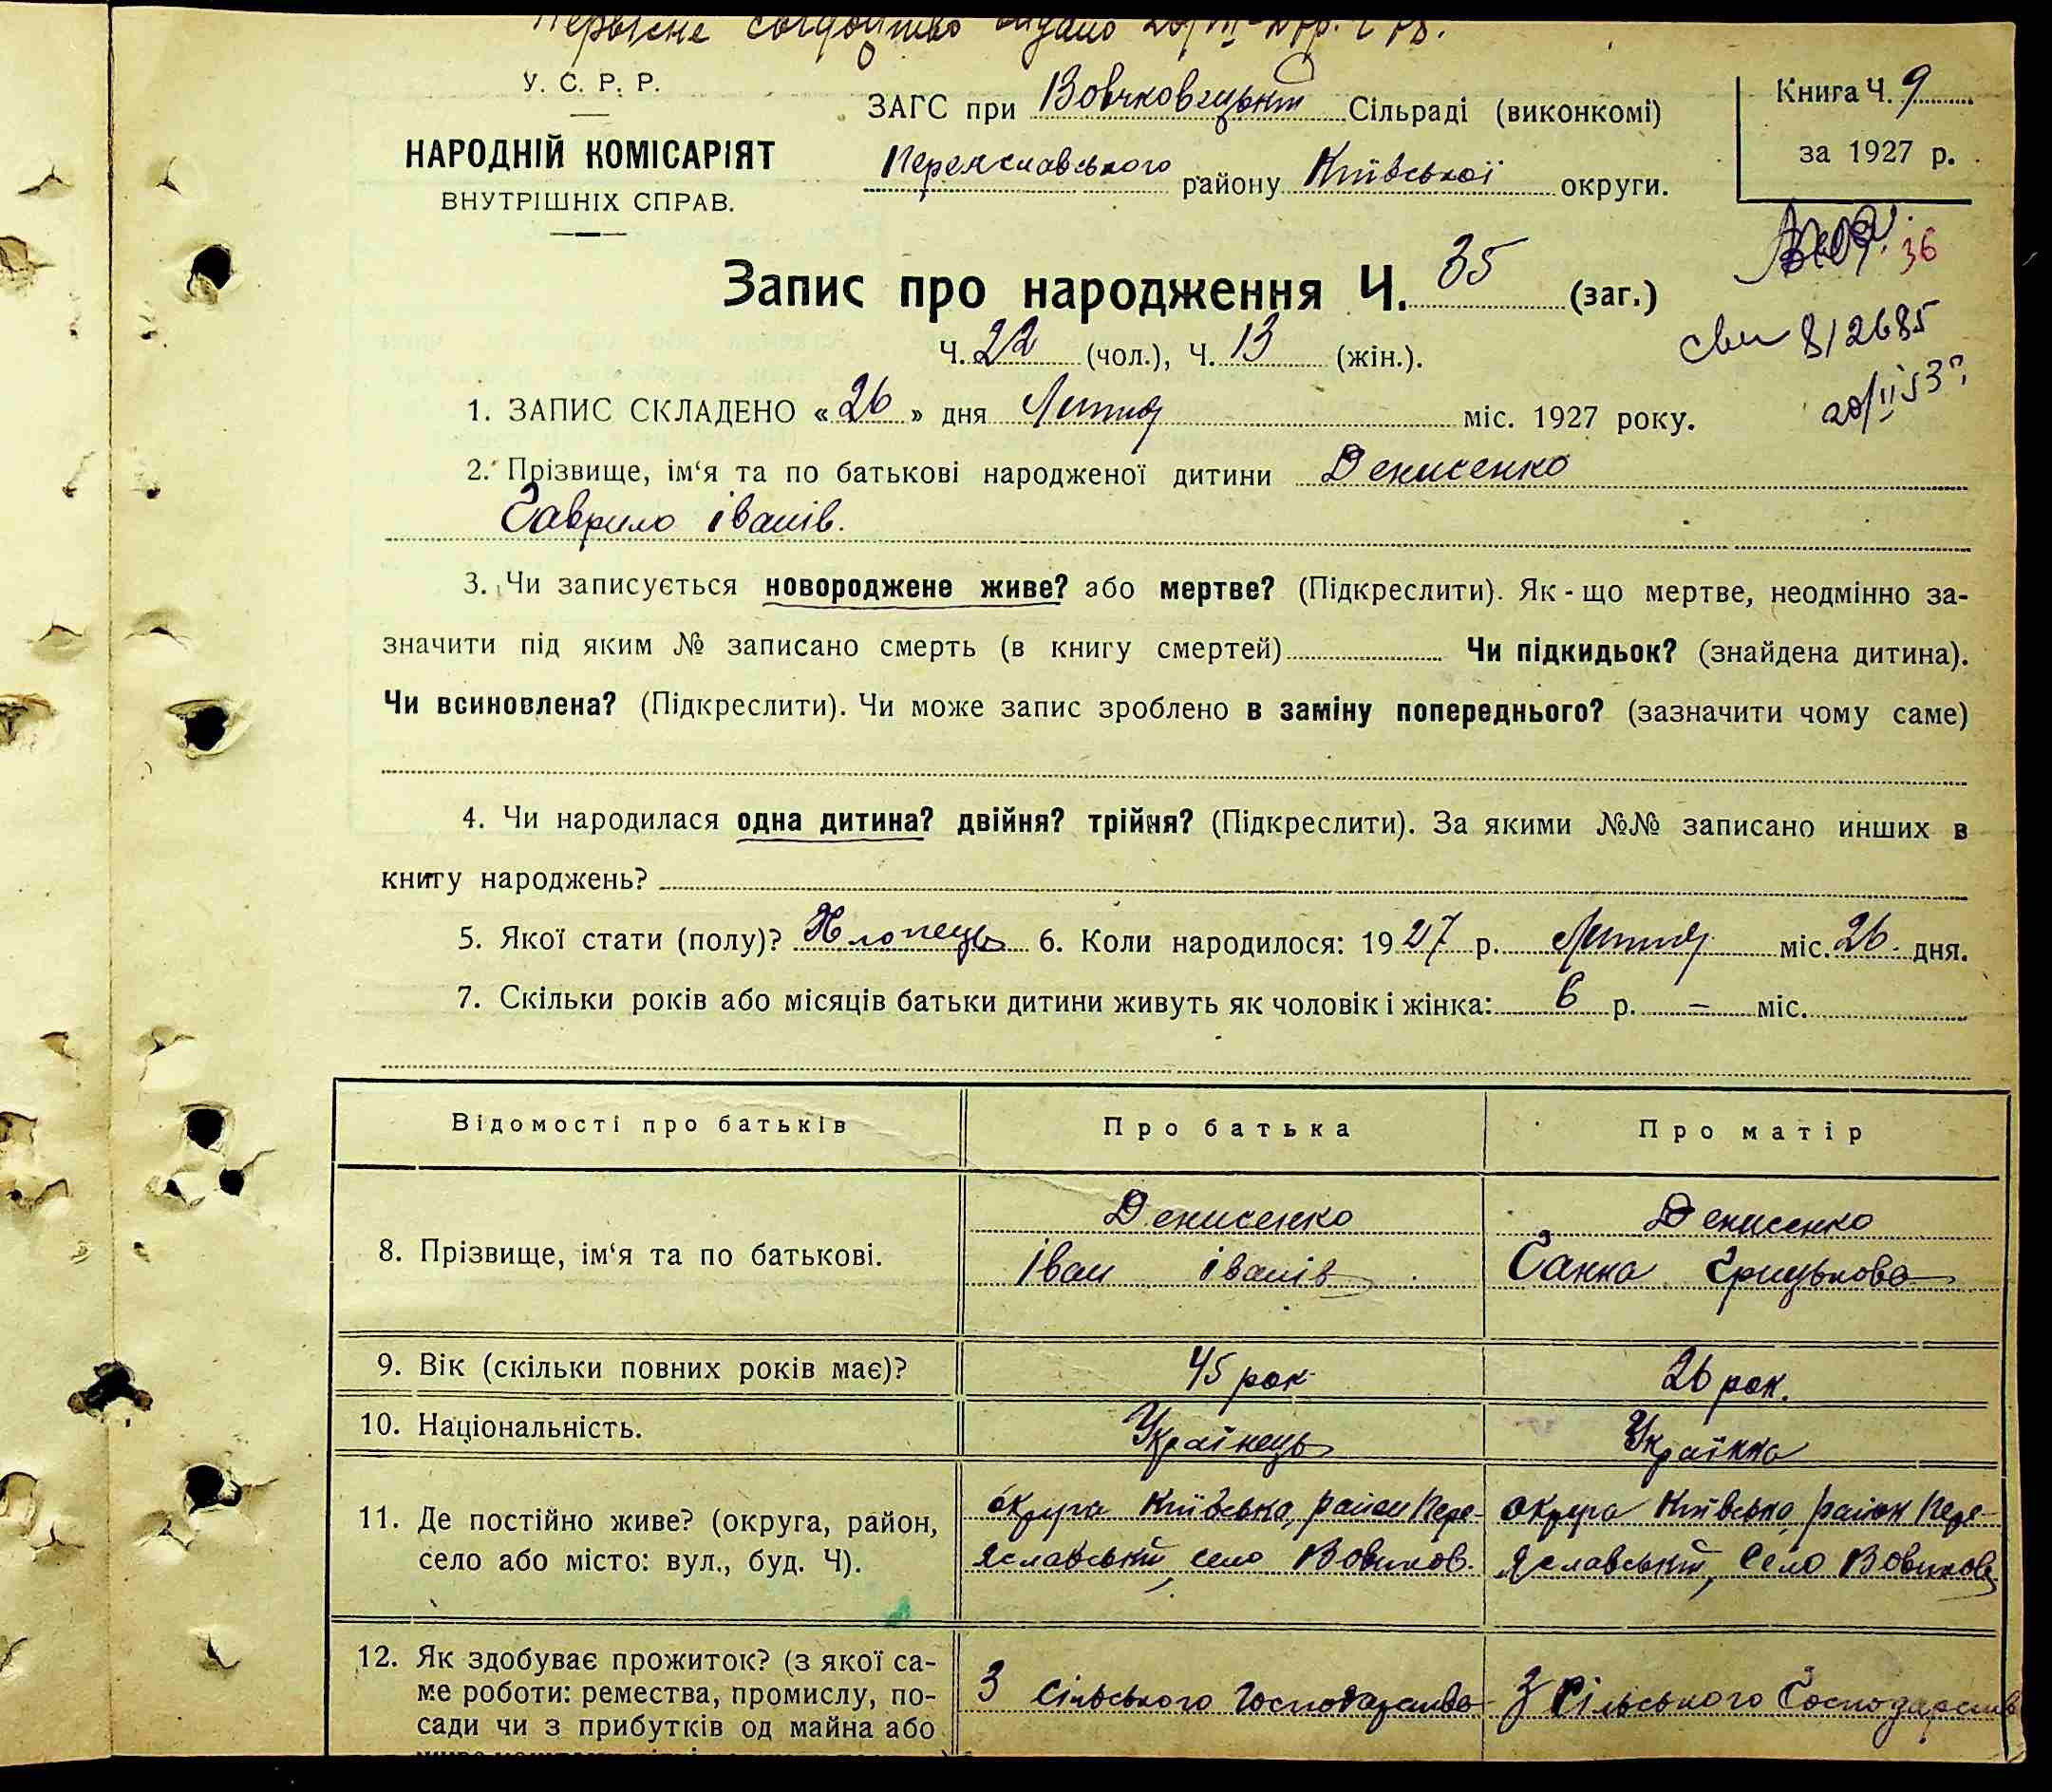 Первісне свідоцтво видано
У. С. Р. Р.
НАРОДНІЙ КОМІСАРІЯТ
ВНУТРІШНІХ СПРАВ.
ЗАГС при Вовчковецькій Сільраді (виконкомі)
Переяславського району Київської округи.
Книга Ч. 9
за 1927 р.
36
Запис про народження Ч. 35 (заг.)
Ч. 22 (чол.), Ч. 13 (жін.).
812685
1. ЗАПИС СКЛАДЕНО « 26 » дня Липня міс. 1927 року.
2. Прізвище, ім‘я та по батькові народженої дитини Денисенко
Гаврило іванів.
3. Чи записується новороджене живе? або мертве? (Підкреслити). Як - що мертве, неодмінно за-
значити під яким № записано смерть (в книгу смертей) Чи підкидьок? (знайдена дитина).
Чи всиновлена? (Підкреслити). Чи може запис зроблено в заміну попереднього? (зазначити чому саме)
4. Чи народилася одна дитина? двійня? трійня? (Підкреслити). За якими №№ записано инших в
книгу народжень?
5. Якої стати (полу)? Хлопець 6. Коли народилося: 1927 р. Липня міс. 26. дня.
7. Скільки років або місяців батьки дитини живуть як чоловік і жінка: 6 р. – міс.
Відомості про батьків Про батька Про матір
8. Прізвище, ім‘я та по батькові.
Денисенко
іван іванів
Денисенко
Ганна Грицькова
9. Вік (скільки повних років має)? 45 рок 26 рок.
10. Національність. Українець Українка
11. Де постійно живе? (округа, район,
село або місто: вул., буд. Ч).
округа Київська, район Пере-
яславський, село Вовчков.
округа Київська, район Пере-
яславський, село Вовчков
12. Як здобуває прожиток? (з якої са-
ме роботи: ремества, промислу, по-
сади чи з прибутків од майна або
З сільського господарства
З Сільського Господарств